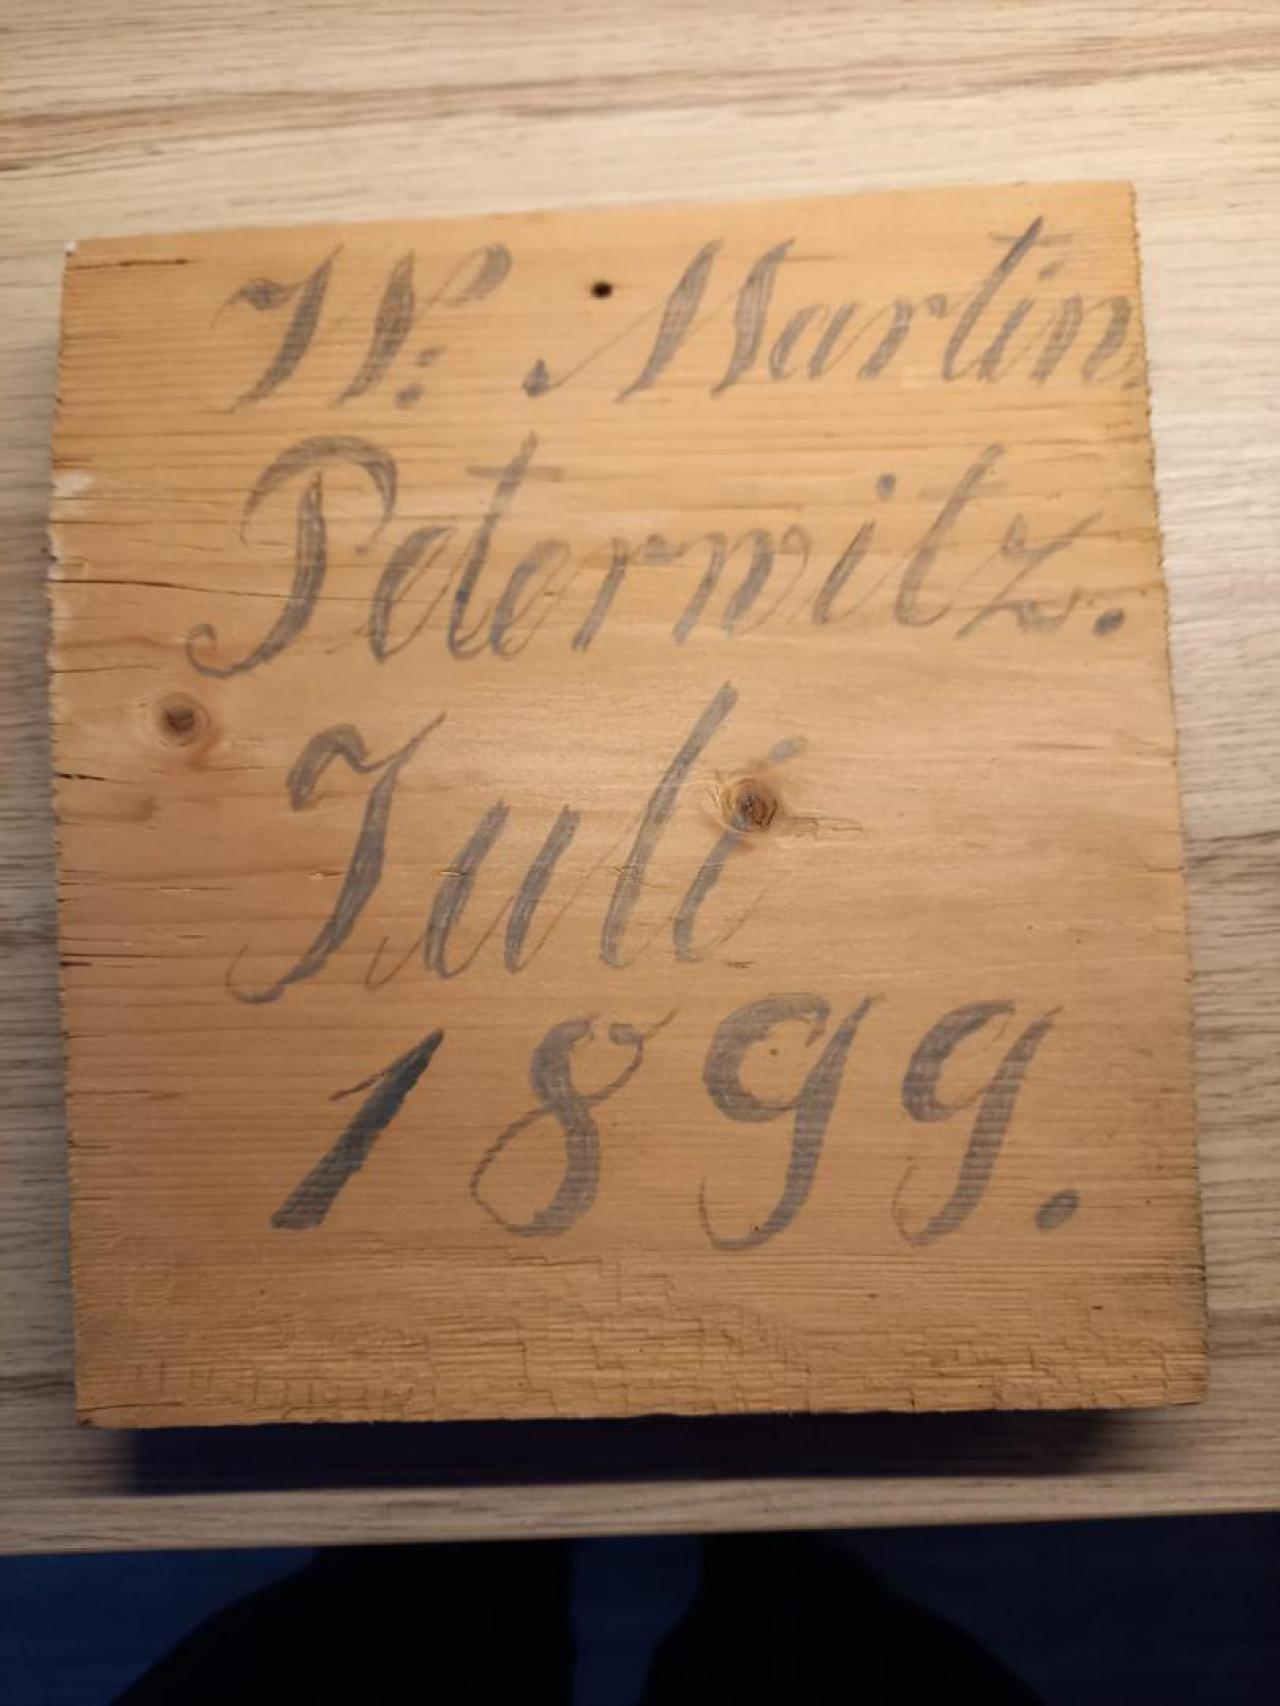 W: Martin.
Peterwitz.
Juli
1899.